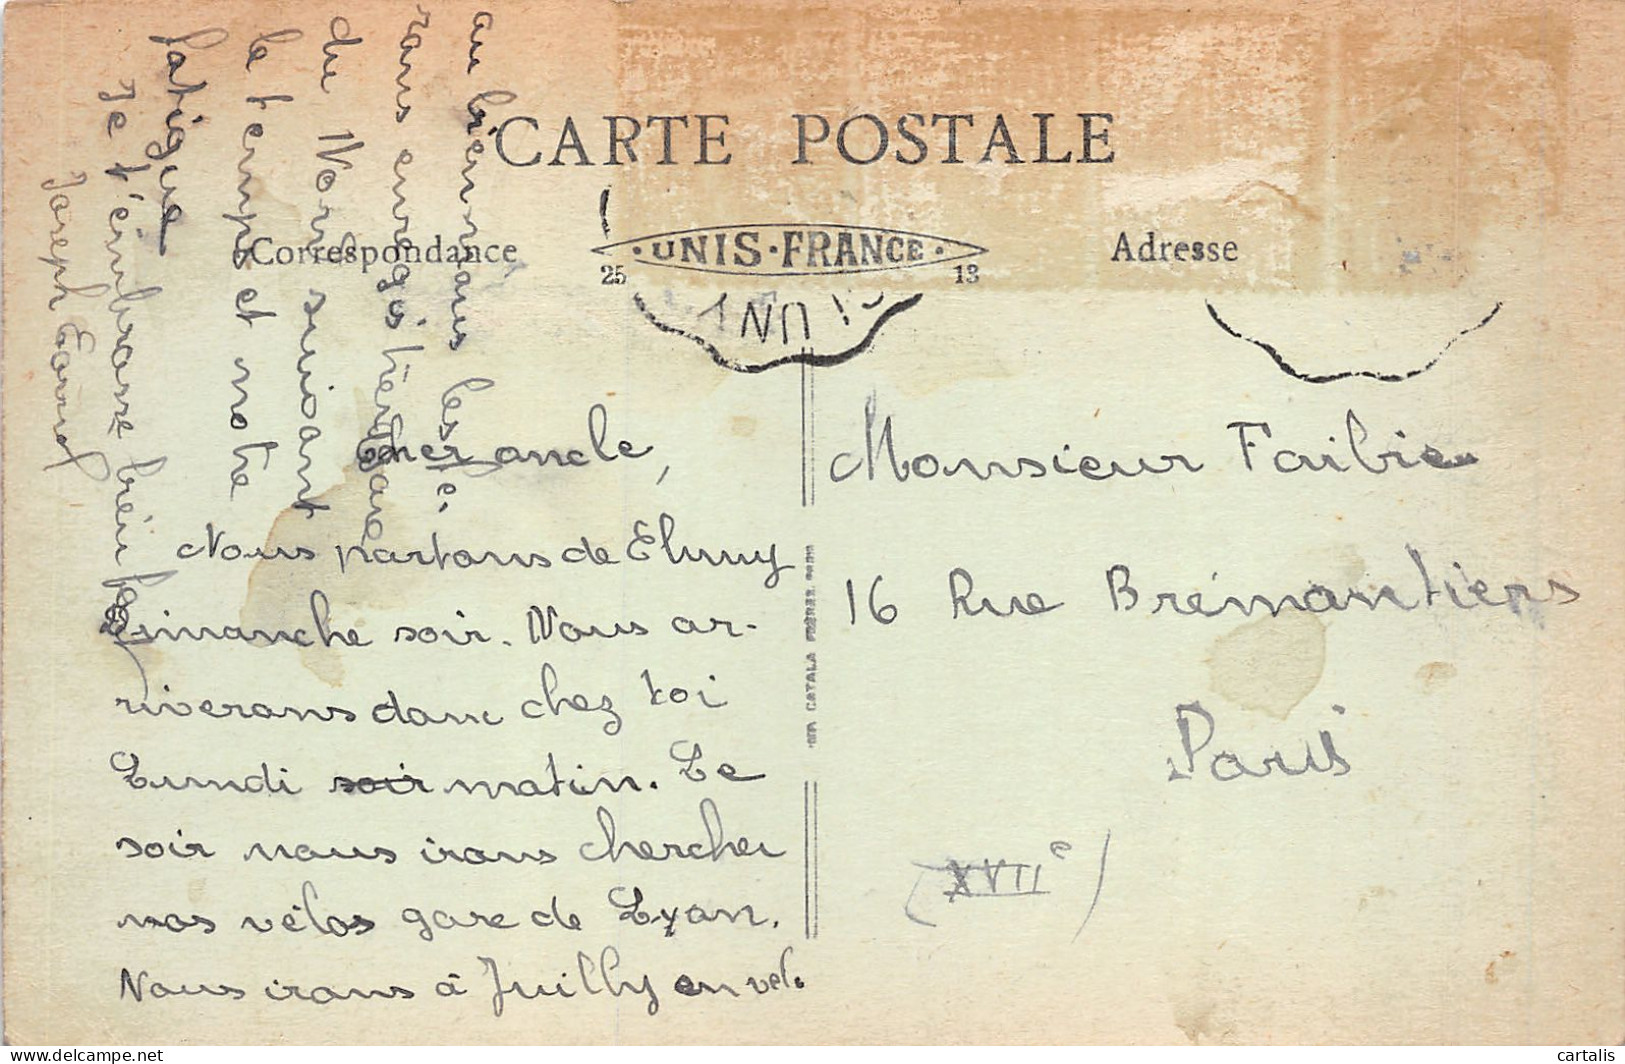 CARTE POSTALE
Correspondance
UNIS-FRANCE
25 13
Adresse
Cher oncle,
Nous partons de Eluny
Dimanche soir. Nous ar-
riverons donc chez toi
Lundi soir matin. Le
soir nous irons chercher
nos vélos gare de Lyon.
Nous irons à Juilly en vélo
ou bien nous les
rons enregistrer gare
du Nord suivant
le temps et notre
fatigue
Je t'embrasse bien fort
Joseph
Monsieur Faibie
16 Rue Brémontiers
Paris
(XVIIe)
CATALA FRÈRES PARIS
cartalis
https://www.delcampe.net